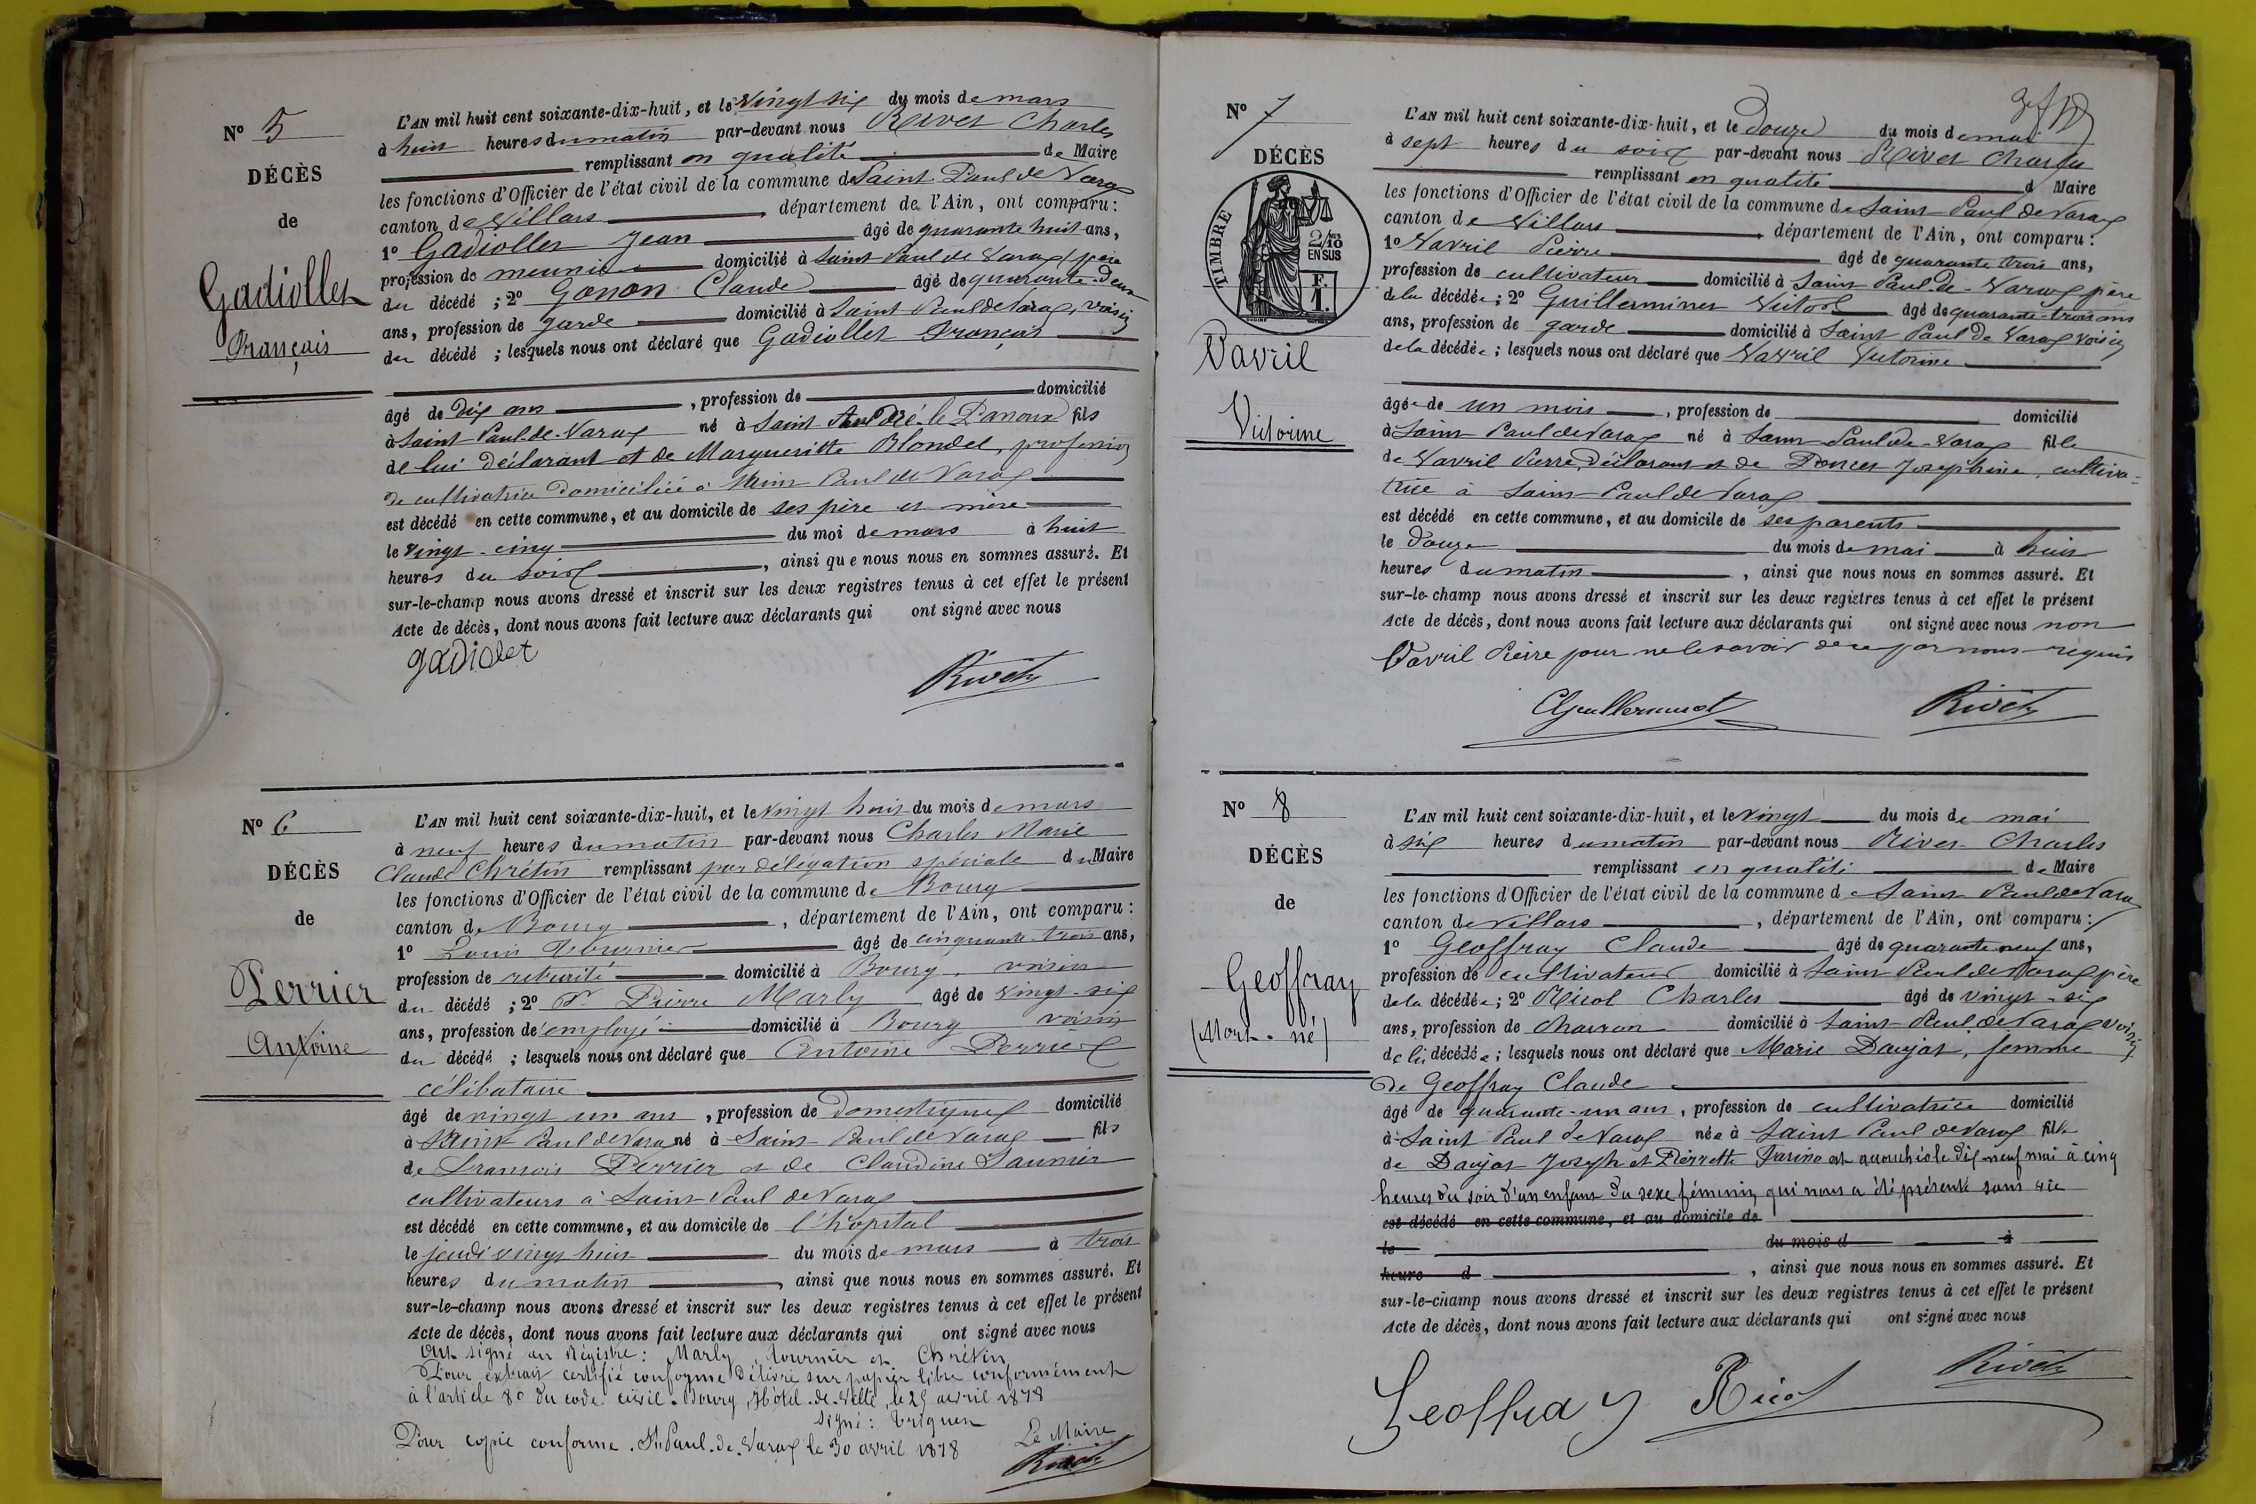 N° 5
DÉCÈS
de
Gadiollet
François
L'AN mil huit cent soixante-dix-huit, et le vingt six du mois de mars
à huit heures du matin par-devant nous Rivet Charles
remplissant en qualité de Maire
les fonctions d'Officier de l'état civil de la commune de Saint Paul de Varax
canton de Villars, département de l'Ain, ont comparu :
1° Gadiollet Jean âgé de quarante huit ans,
profession de meunier domicilié à Saint Paul de Varax, père
du décédé ; 2° Gonon Claude âgé de quarante-deux
ans, profession de garde domicilié à Saint Paul de Varax, voisin
du décédé ; lesquels nous ont déclaré que Gadiollet François
âgé de dix ans, profession de domicilié
à Saint-Paul-de-Varax né à Saint André-le-Panoux fils
de lui déclarant et de Margueritte Blondel, profession
de cultivatrice domiciliée à Saint Paul de Varax
est décédé en cette commune, et au domicile de ses père et mère
le vingt-cinq du moi de mars à huit
heures du soir, ainsi que nous nous en sommes assuré. Et
sur-le-champ nous avons dressé et inscrit sur les deux registres tenus à cet effet le présent
Acte de décès, dont nous avons fait lecture aux déclarants qui ont signé avec nous
gadiolet Rivet
N° 6
DÉCÈS
de
Perrier
Antoine
L'AN mil huit cent soixante-dix-huit, et le vingt huit du mois de mars
à neuf heures du matin par-devant nous Charles Marie
Claude Chrétin remplissant par délégation spéciale du Maire
les fonctions d'Officier de l'état civil de la commune de Bourg
canton de Bourg, département de l'Ain, ont comparu :
1° Louis Tournier âgé de cinquante-trois ans,
profession de retraité domicilié à Bourg, voisin
du décédé ; 2° Pierre Marly âgé de vingt-six
ans, profession d'employé domicilié à Bourg voisin
du décédé ; lesquels nous ont déclaré que Antoine Perrier
célibataire
âgé de vingt un ans, profession de domestique domicilié
à Saint Paul de Varax né à Saint-Paul de Varax fils
de François Perrier et de Claudine Saunier
cultivateurs à Saint-Paul de Varax
est décédé en cette commune, et au domicile de l'hôpital
le jeudi vingt huit du mois de mars à trois
heures du matin, ainsi que nous nous en sommes assuré. Et
sur-le-champ nous avons dressé et inscrit sur les deux registres tenus à cet effet le présent
Acte de décès, dont nous avons fait lecture aux déclarants qui ont signé avec nous
Ont signé au Régistre : Marly, Tournier et Chrétin
Pour extrait certifié conforme délivré sur papier libre conformément
à l'article 80 du code civil. Bourg, Hôtel-de-Ville, le 25 avril 1878
Signé :
Pour copie conforme. St Paul-de-Varax le 30 avril 1878 Le Maire
Rivet
N° 7
DÉCÈS
TIMBRE
2/10
EN SUS
F.
1.
Vavril
Victorine
L'AN mil huit cent soixante-dix-huit, et le douze du mois de mai
à sept heures du soir par-devant nous Rivet Charles
remplissant en qualité d Maire
les fonctions d'Officier de l'état civil de la commune de Saint Paul de Varax
canton de Villars, département de l'Ain, ont comparu :
1° Vavril Pierre âgé de quarante trois ans,
profession de cultivateur domicilié à Saint Paul-de-Varax père
de la décédée ; 2° Guillerminet Victor âgé de quarante-trois ans
ans, profession de garde domicilié à Saint Paul de Varax voisin
de la décédée ; lesquels nous ont déclaré que Vavril Victorine
âgée de un mois, profession de domicilié
à Saint Paul de Varax né à Saint-Paul-de-Varax fille
de Vavril Pierre, déclarant et de Poncet Joséphine, cultiva-
trice à Saint-Paul de Varax
est décédé en cette commune, et au domicile de ses parents
le douze du mois de mai à huit
heures du matin, ainsi que nous nous en sommes assuré. Et
sur-le-champ nous avons dressé et inscrit sur les deux registres tenus à cet effet le présent
Acte de décès, dont nous avons fait lecture aux déclarants qui ont signé avec nous non
Vavril Pierre pour ne le savoir de ce par nous requis
Guillerminet Rivet
N° 8
DÉCÈS
de
Geoffray
(Mort-né)
L'AN mil huit cent soixante-dix-huit, et le vingt du mois de mai
à six heures du matin par-devant nous Rivet Charles
remplissant en qualité de Maire
les fonctions d'Officier de l'état civil de la commune de Saint Paul de Varax
canton de Villars, département de l'Ain, ont comparu :
1° Geoffray Claude âgé de quarante neuf ans,
profession de cultivateur domicilié à Saint Paul de Varax père
de la décédée ; 2° Ricol Charles âgé de vingt-six
ans, profession de charron domicilié à Saint-Paul de Varax voisin
de la décédée ; lesquels nous ont déclaré que Marie Daujat, femme
de Geoffray Claude
âgé de quarante-un ans, profession de cultivatrice domicilié
à Saint Paul de Varax née à Saint Paul de Varax fille
de Daujat Joseph et Pierrette Farine est accouchée le dix neuf mai à cinq
heures du soir d'un enfant du sexe féminin, qui nous a été présenté sans vie
est décédé en cette commune, et au domicile de
le du mois d à
heure d, ainsi que nous nous en sommes assuré. Et
sur-le-champ nous avons dressé et inscrit sur les deux registres tenus à cet effet le présent
Acte de décès, dont nous avons fait lecture aux déclarants qui ont signé avec nous
Geoffray Ricol Rivet